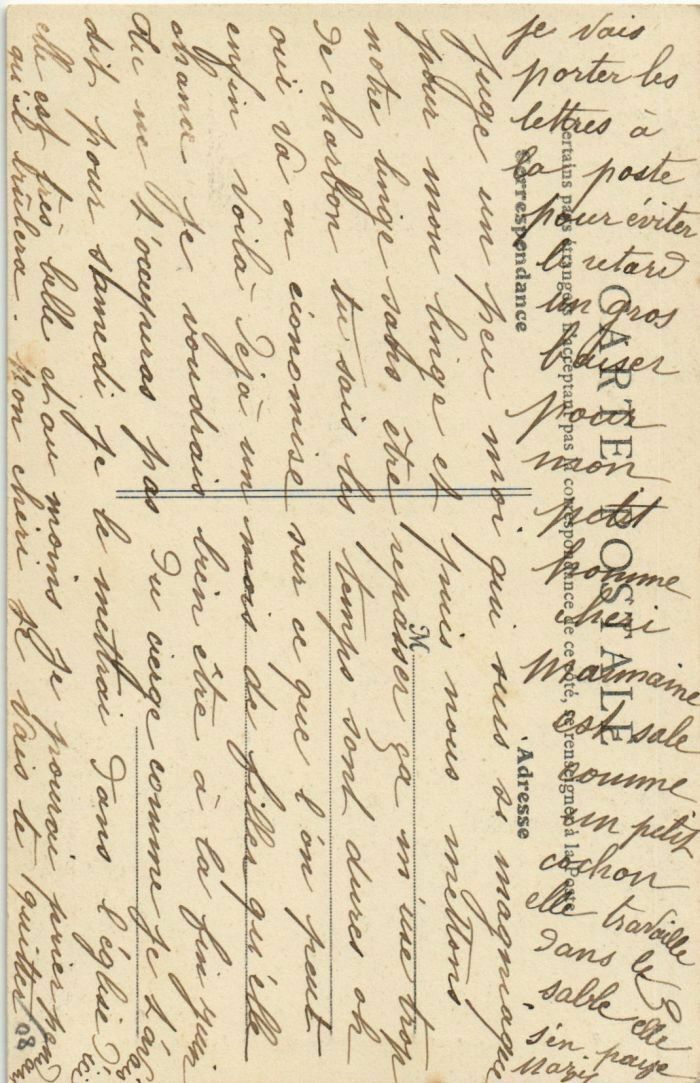 CARTE POSTALE
Certains pays étrangers n'acceptant pas la correspondance de ce côté, se renseigner à la Poste
Correspondance
Adresse
M
juge un peu moi qui suis si
pour mon linge et puis nous mettons
notre linge sans être repasser ça m'use trop
de charbon tu sais les temps sont dures oh
oui va on économise sur ce que l'on peut
enfin voilà déjà un mois de filler qu'elle
chance je voudrais bien être à la fin juin
tu ne t'occuperas pas du cierge comme je t'
dit pour samedi je le mettrai dans l'église
elle est très belle et au moins je pourai prier
qu'il brûlera. Mon chéri je vais te quitter
je vais
porter les
lettres à
la poste
pour éviter
le retard
un gros
baiser
pour
mon
petit
homme
chéri
est sale
comme
un petit
cochon
elle travaille
dans le
sable elle
s'en paye
08